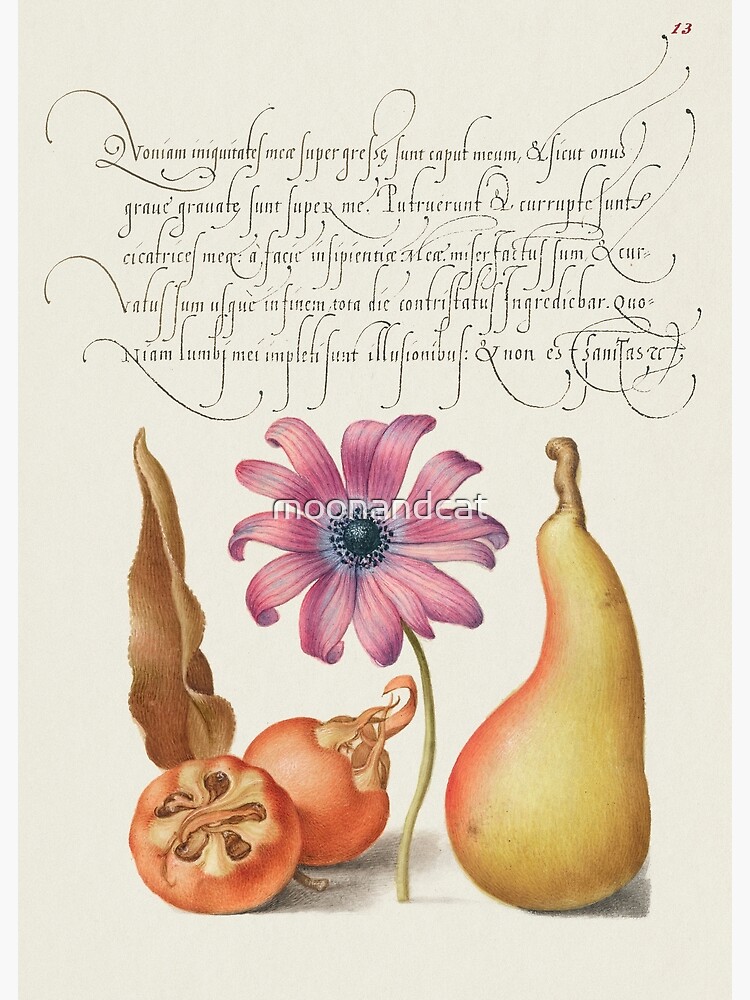 13
Qvoniam iniquitates meæ super gressę sunt caput meum, & sicut onus
graue grauatę sunt supeR me. Putruerunt & currupte sunt
cicatrices meæ: à facie insipientiæ Meæ. miser factus sum, & cur-
vatus sum usquè in finem, tota die contristatus Ingrediebar. Quo-
Niam lumbj mei impleti sunt illusionibus: & non est sanitas &c
moonandcat